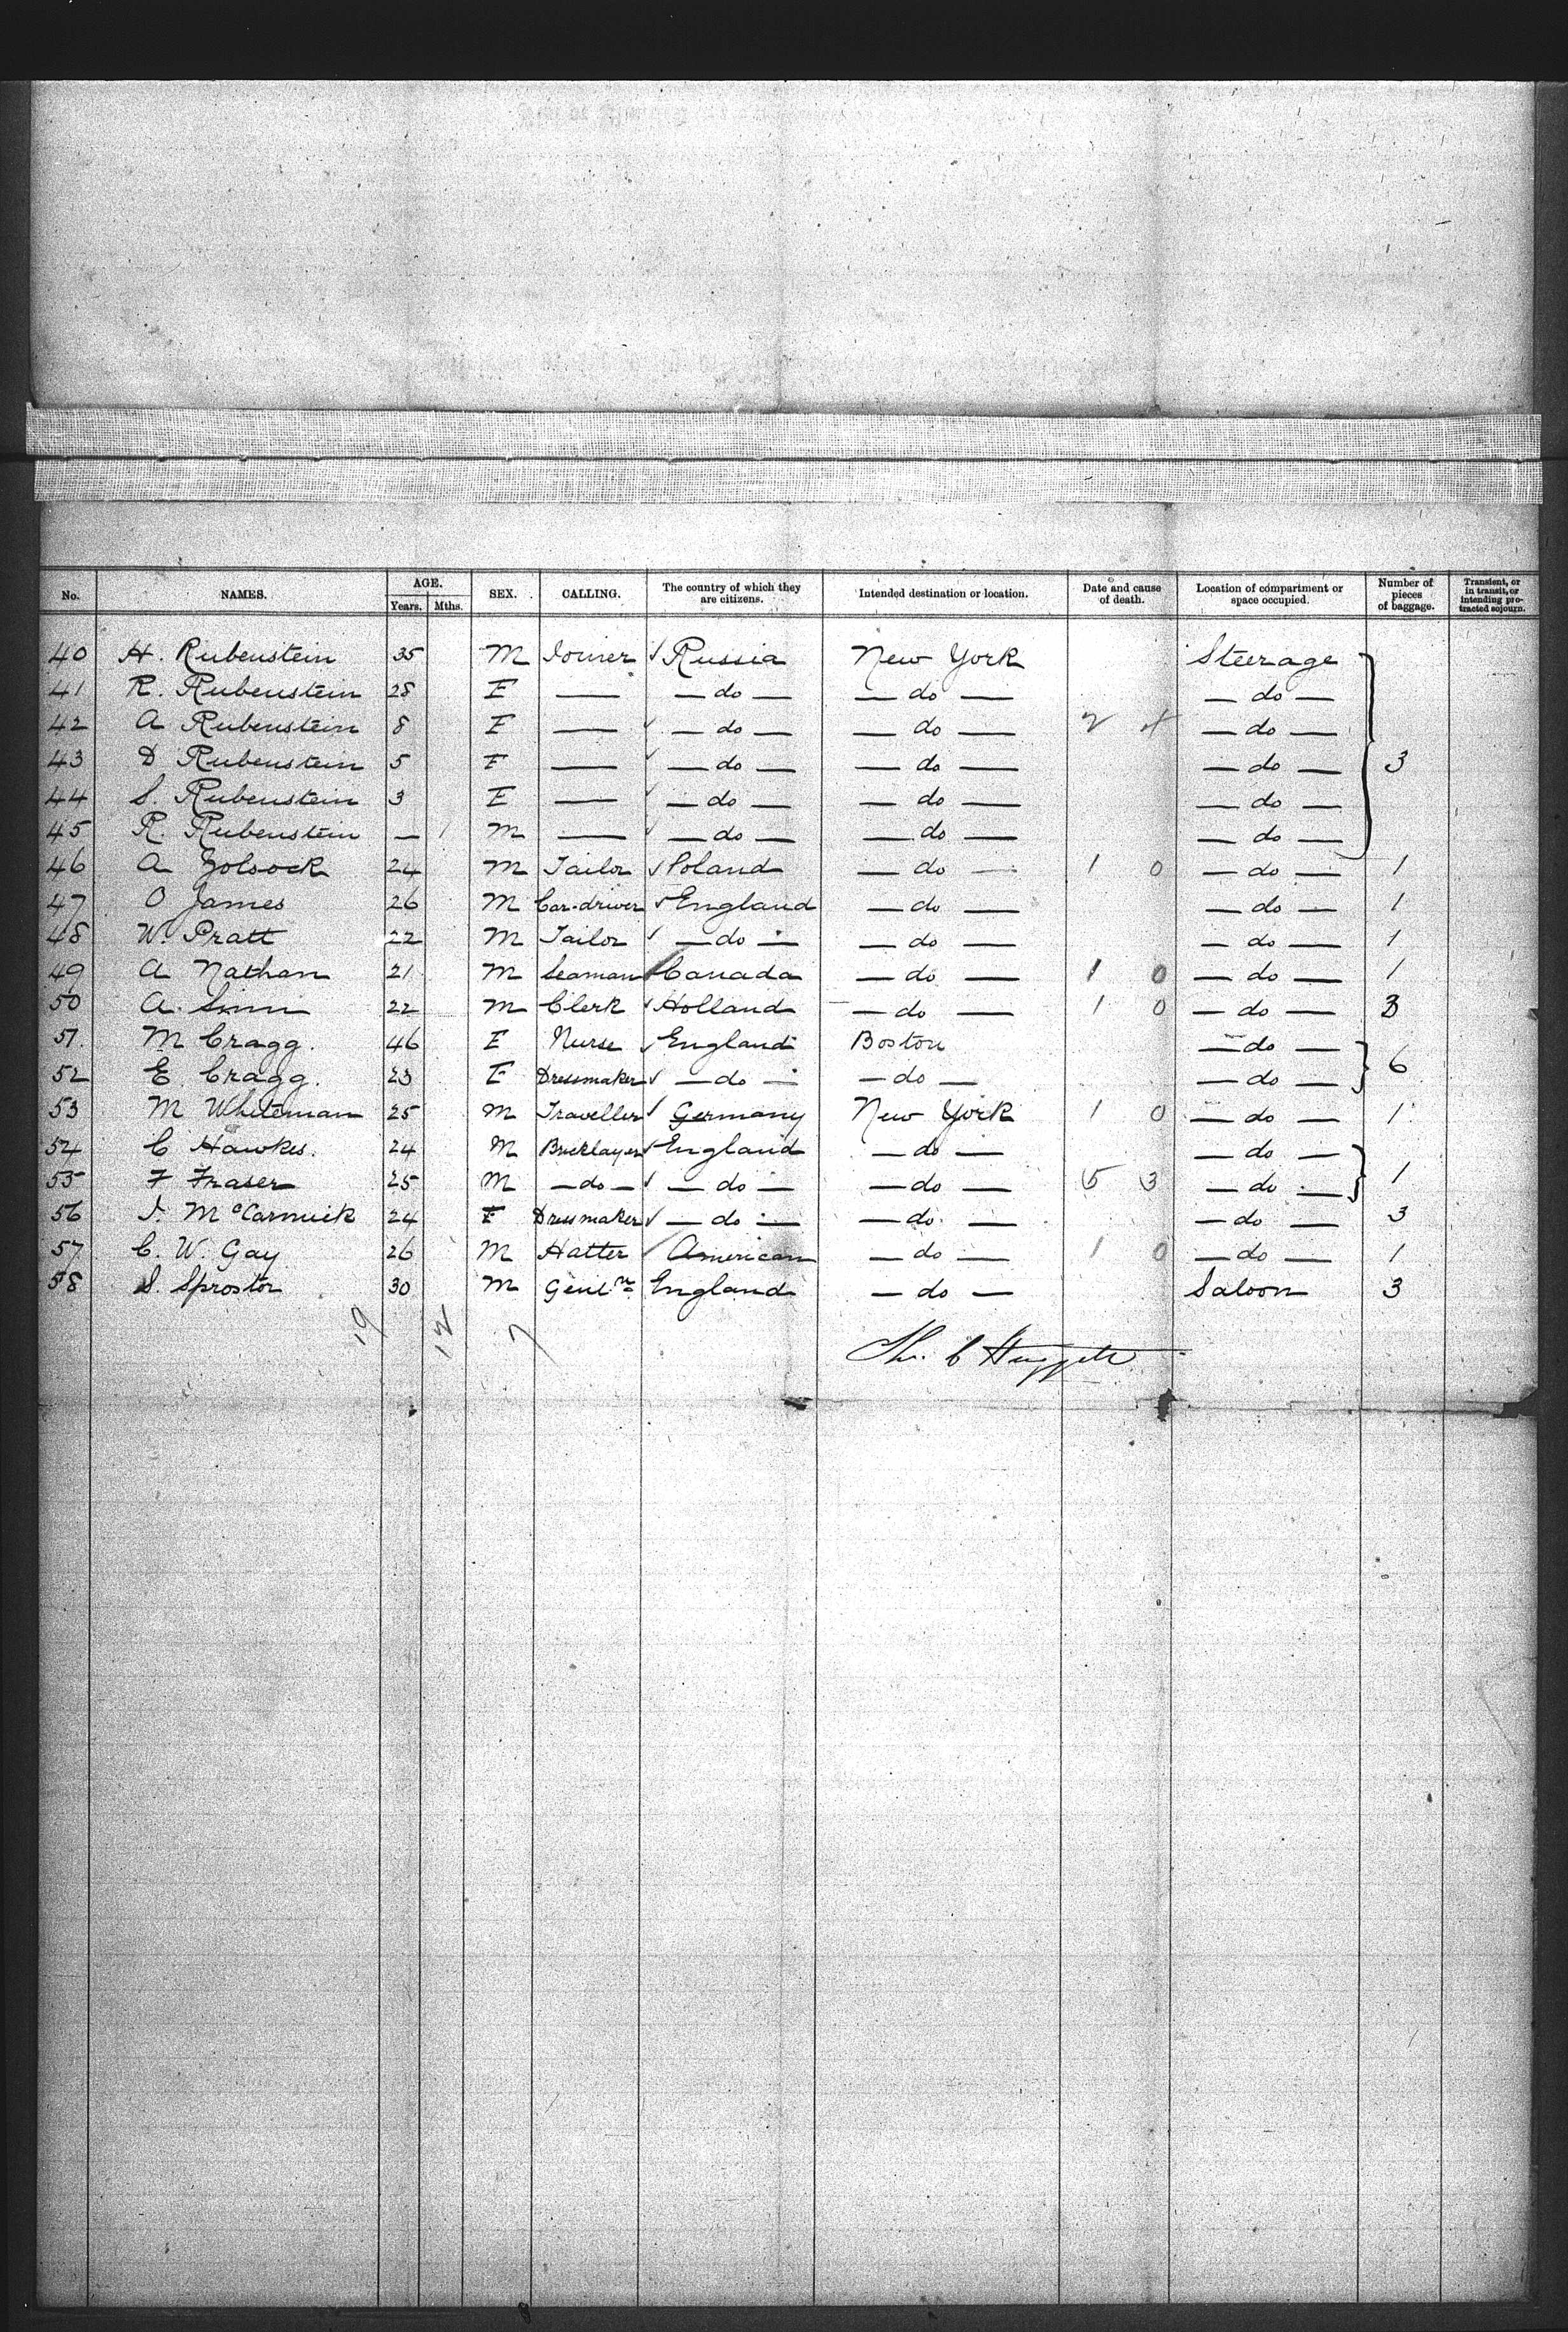 No. NAMES. AGE. Years. Mths. SEX. CALLING. The country of which they are citizens. Intended destination or location. Date and cause of death. Location of compartment or space occupied. Number of pieces of baggage. Transient, or in transit, or intending protracted sojourn.
40 H. Rubenstein 35 M Joiner ✓ Russia New York Steerage
41 R. Rubenstein 28 F — — do — — do — — do —
42 A Rubenstein 8 F — ✓ — do — — do — 2 4 — do —
43 D Rubenstein 5 F — ✓ — do — — do — — do — 3
44 S. Rubenstein 3 F — ✓ — do — — do — — do —
45 R. Rubenstein — 1 M — ✓ — do — — do — — do —
46 A 24 M Tailor ✓ Poland — do — 1 0 — do — 1
47 O James 26 M Car-driver ✓ England — do — — do — 1
48 W. Pratt 22 M Tailor ✓ — do — — do — — do — 1
49 A Nathan 21 M Seaman ✓ Canada — do — 1 0 — do — 1
50 A. 22 M Clerk ✓ Holland — do — 1 0 — do — 3
51. M Cragg. 46 F Nurse ✓ England Boston — do —
52 E. Cragg. 23 F Dressmaker ✓ — do — — do — — do — 6
53 M Whiteman 25 M Traveller ✓ Germany New York 1 0 — do — 1
54 C Hawkes. 24 M Bricklayer ✓ England — do — — do —
55 F Fraser 25 M — do — ✓ — do — — do — 5 3 — do — 1
56 J. McCormick 24 F Dressmaker ✓ — do — — do — — do — 3
57 C. W. Gay 26 M Hatter ✓ American — do — 1 0 — do — 1
58 S. Sproston 30 M Gentn England — do — Saloon 3
19 12 7
Tho. C Huggett